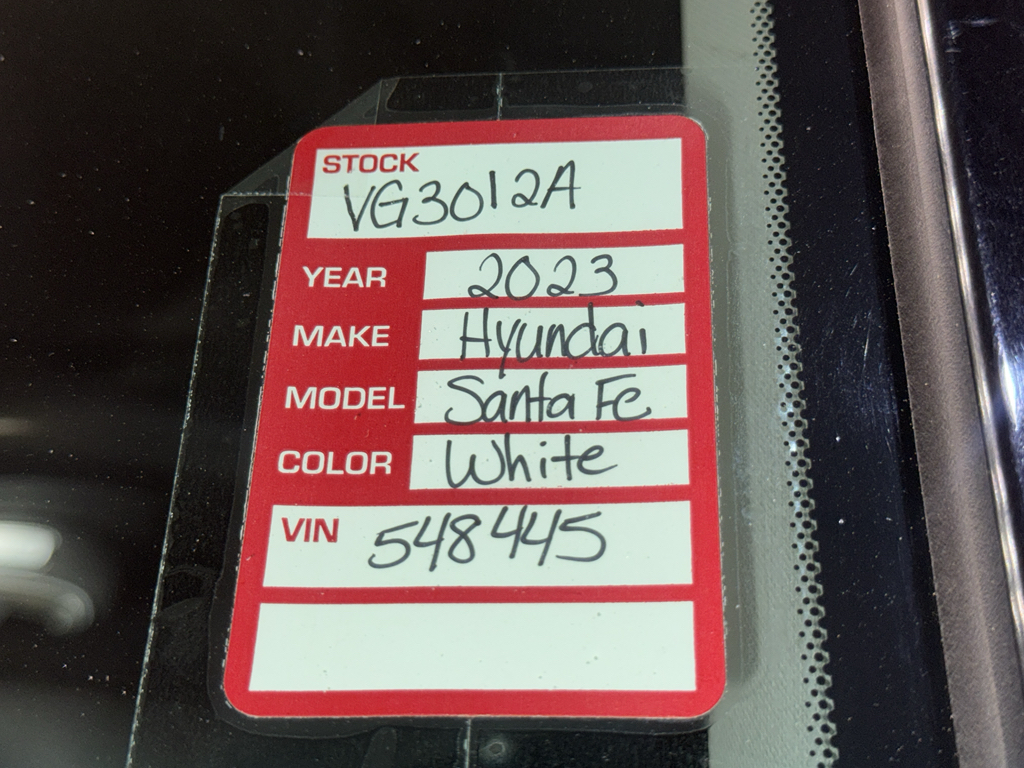 STOCK
VG3012A
YEAR 2023
MAKE Hyundai
MODEL Santa Fe
COLOR White
VIN 548445